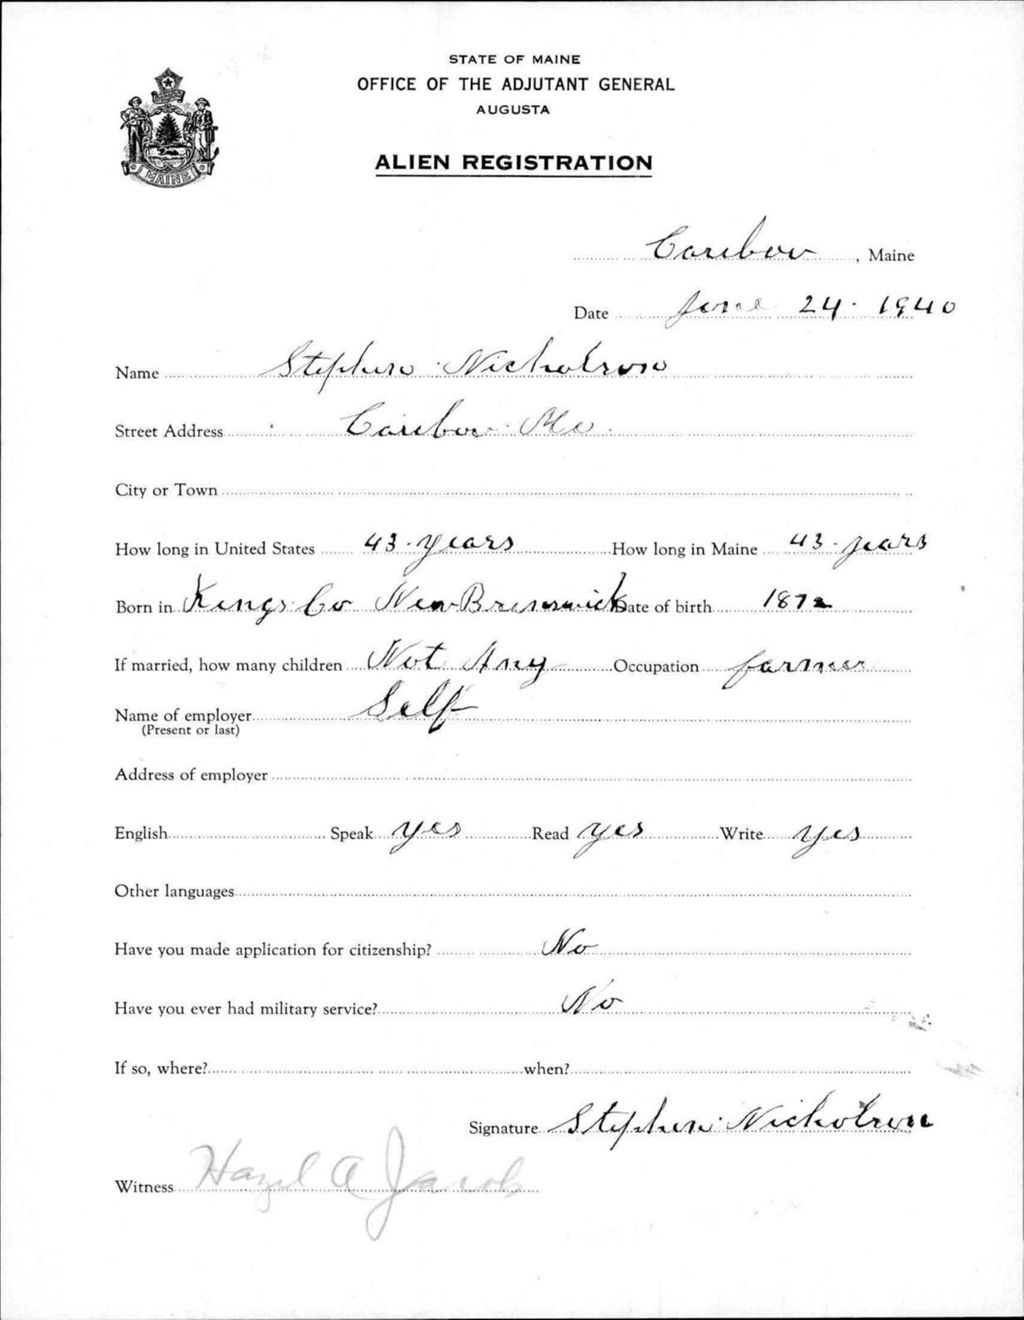 STATE OF MAINE
OFFICE OF THE ADJUTANT GENERAL
AUGUSTA
ALIEN REGISTRATION
MAINE
Caribou, Maine
Date June 24 · 1940
Name Stephen Nicholson
Street Address Caribou Me.
City or Town
How long in United States 43 years How long in Maine 43 years
Born in Kings Co New Brunswick Date of birth 1872
If married, how many children Not Any Occupation farmer
Name of employer Self
(Present or last)
Address of employer
English Speak yes Read yes Write yes
Other languages
Have you made application for citizenship? No
Have you ever had military service? No
If so, where? when?
Signature Stephen Nicholson
Witness Hazel A Jacob